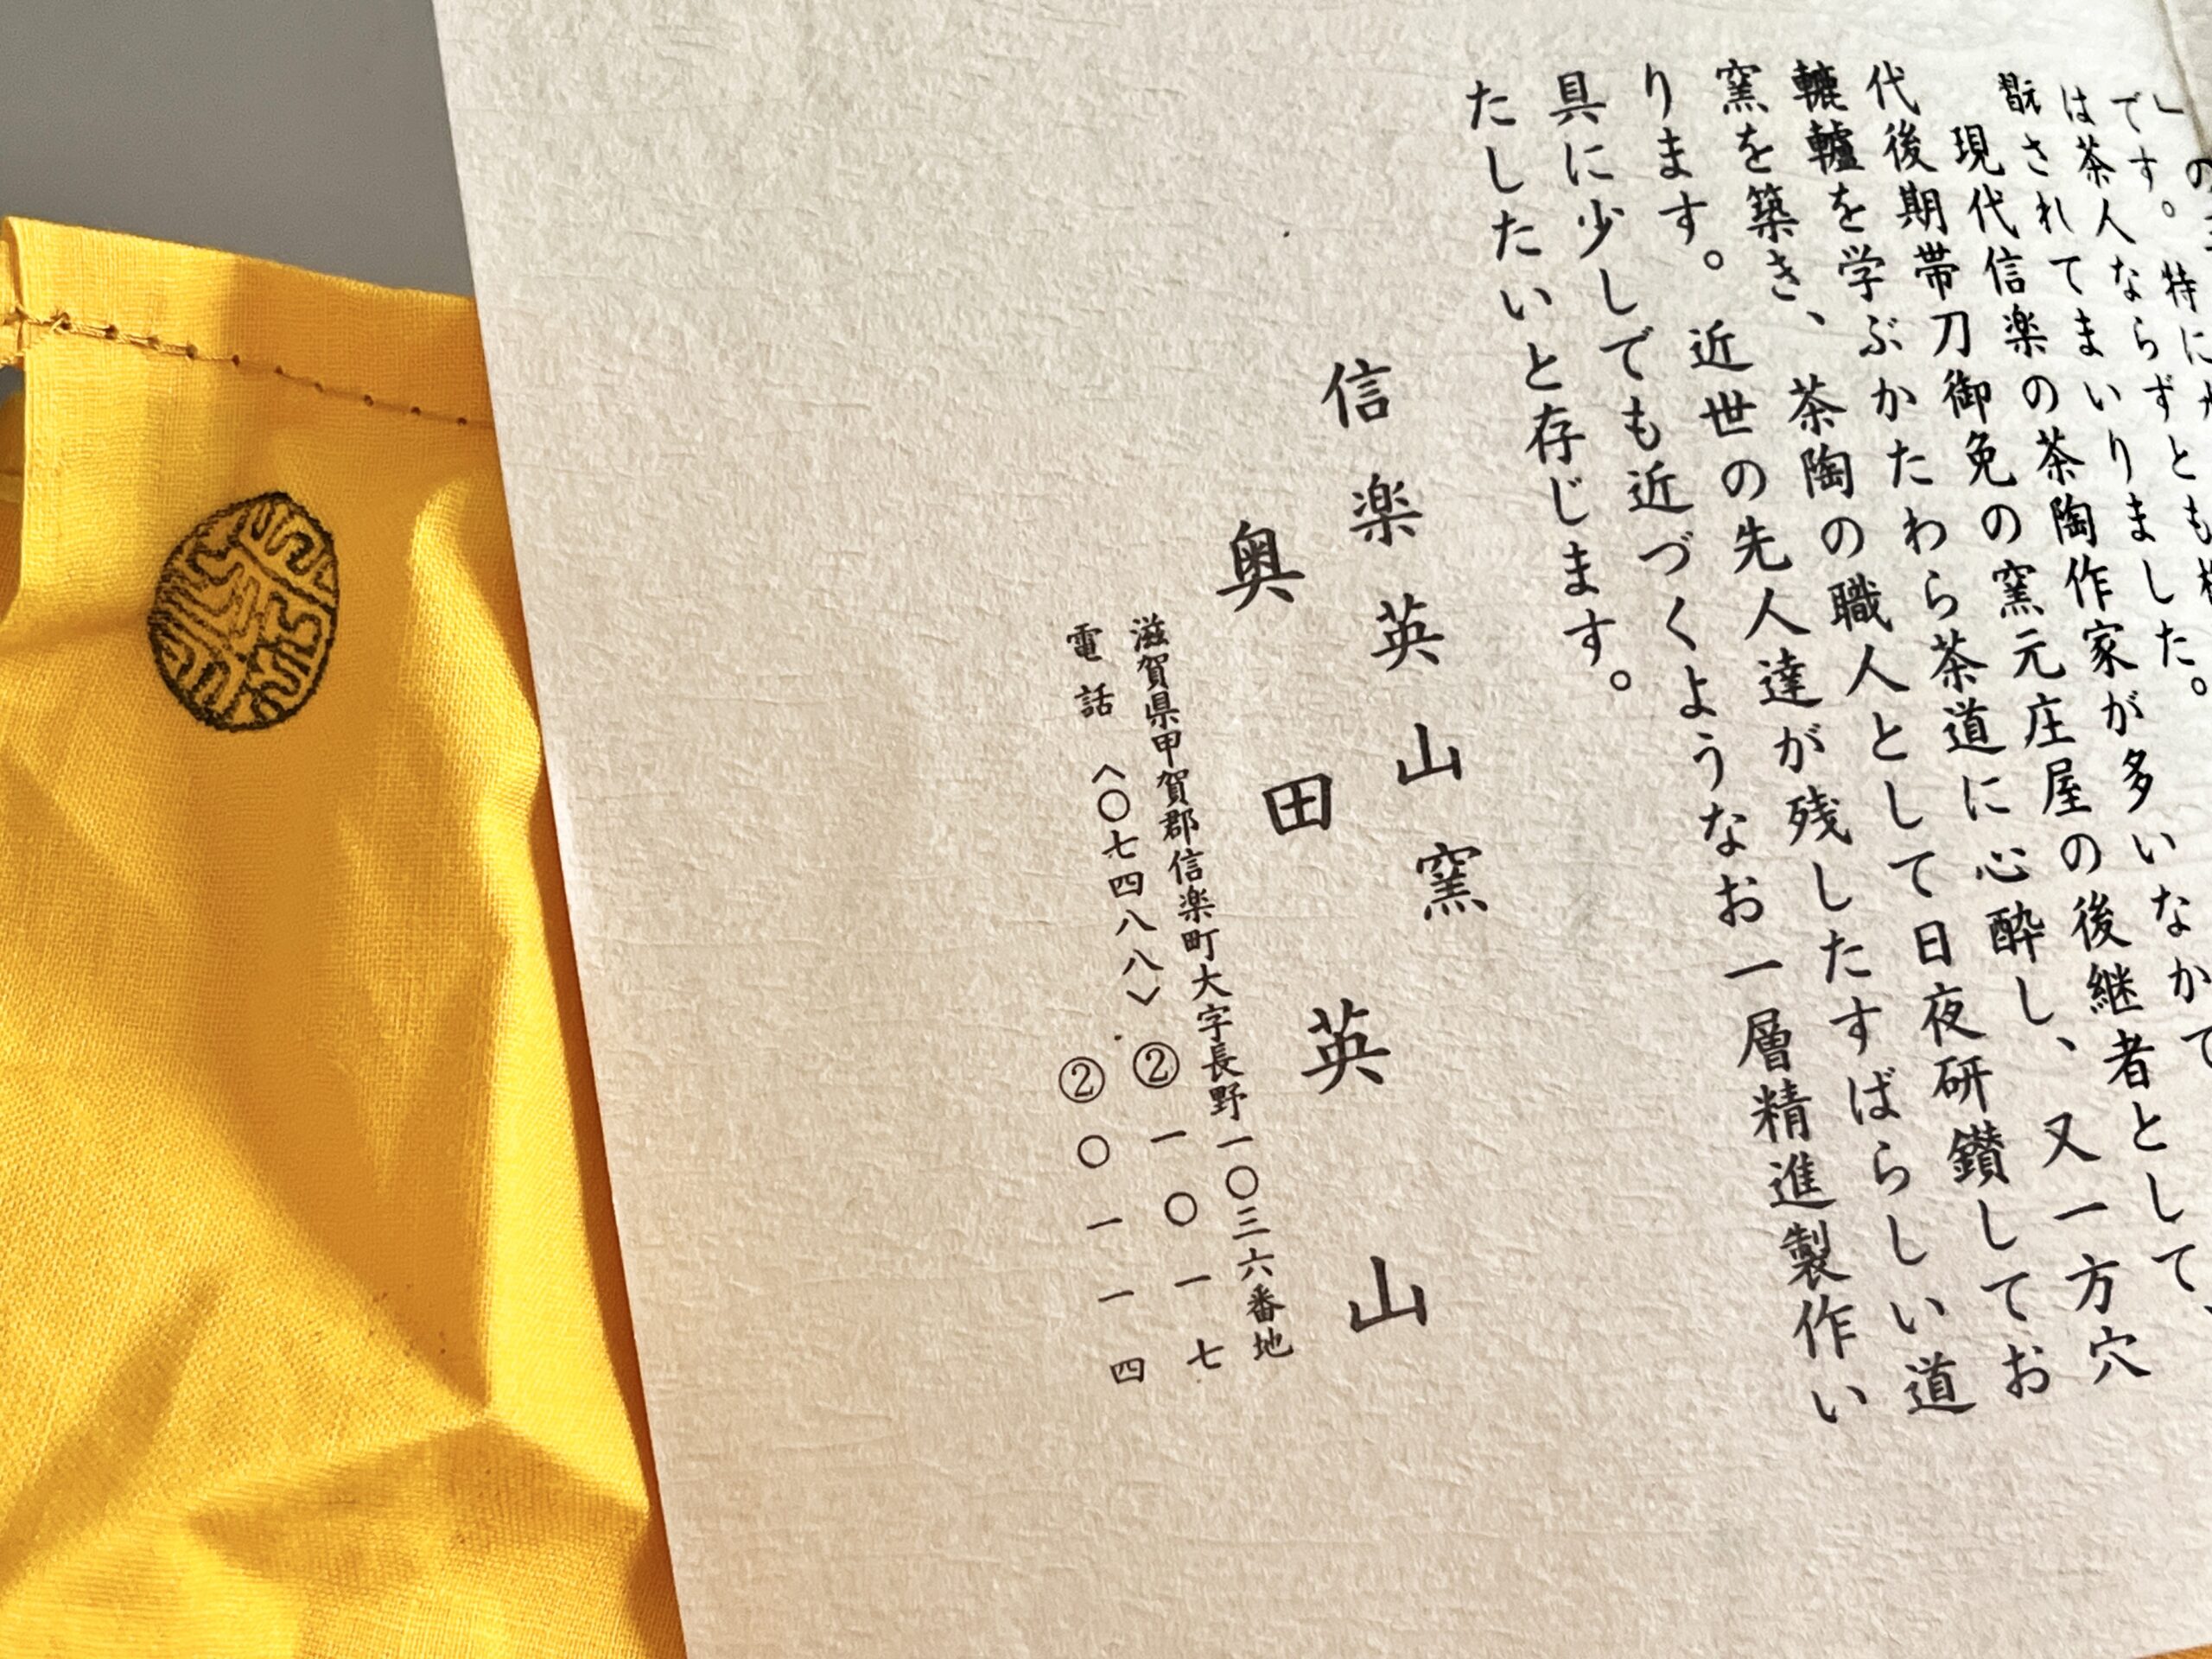 です。特に
は茶人ならずとも
翫されてまいりました。
現代信楽の茶陶作家が多いなかで
代後期帯刀御免の窯元庄屋の後継者として、
轆轤を学ぶかたわら茶道に心酔し、又一方穴
窯を築き、茶陶の職人として日夜研鑽してお
ります。近世の先人達が残したすばらしい道
具に少しでも近づくようなお一層精進製作い
たしたいと存じます。
信楽英山窯
奥田英山
滋賀県甲賀郡信楽町大字長野一〇三六番地
電話〈〇七四八八〉②一〇一七
②〇一一四